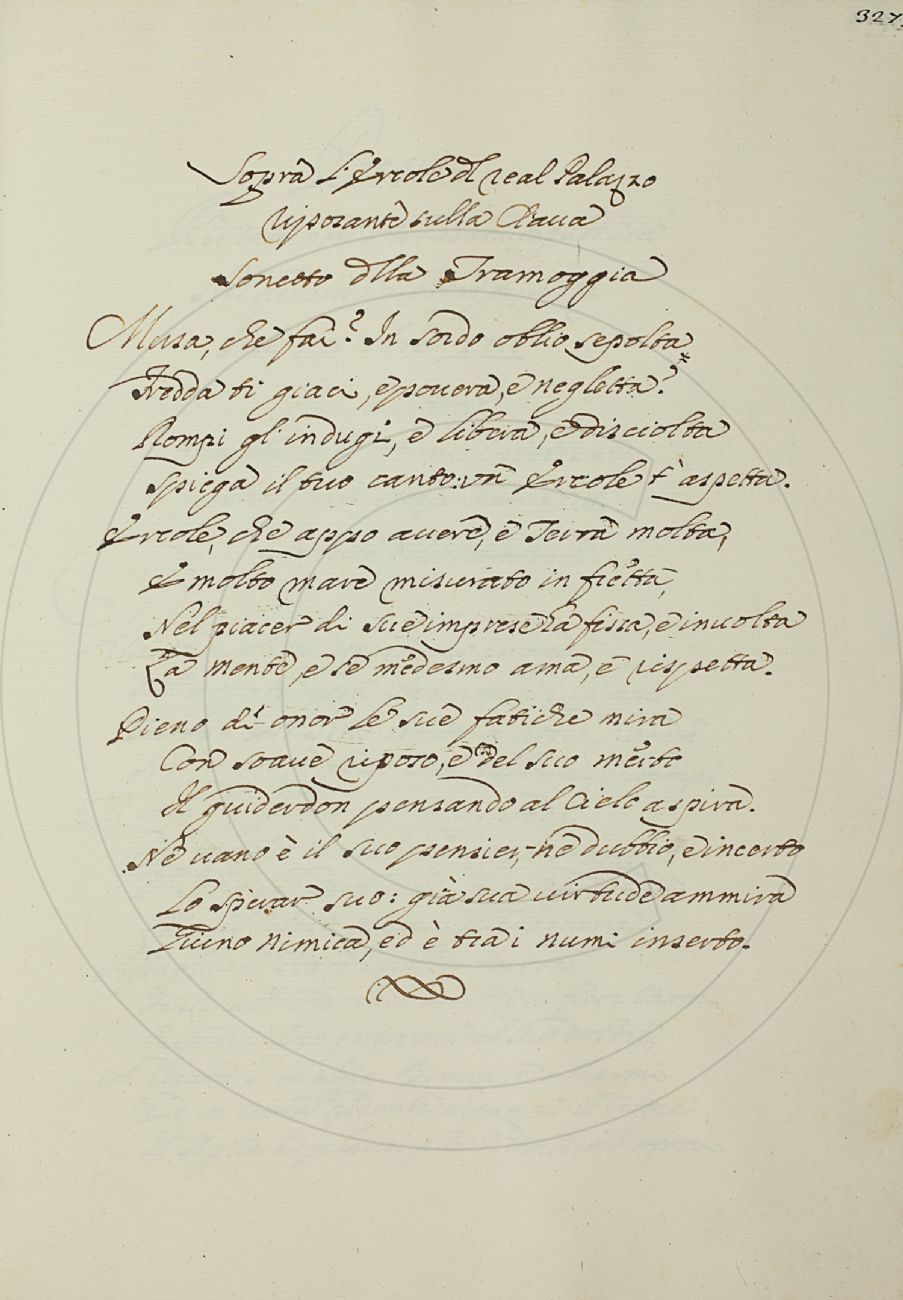 327.
Sopra L'Ercole dl real Palazzo
riposante sulla Claua
Sonetto dlla Tramoggia
Musa, che fai? In sordo oblio sepolta
Fredda ti giaci, e pouera, e negletta?*
Rompi gl'indugi, e libera, e disciolta
Spiega il tuo canto: vn Ercole t'aspetta.
Ercole, che appo auere, e Terra molta,
E molto mare misurato in fretta,
Nel piacer di sue imprese fisca, e inuolta
La mente, e se medesmo ama, e rispetta.
Pieno di onor le sue fatiche mira
Con soaue riposo, e del suo merto
Il guiderdon pensando al Cielo aspira.
Nè uano è il suo pensier, nè dubbio, e incerto
Lo sperar suo: già sua uirtude ammira
Giuno nimica, ed è tra i numi inserto.